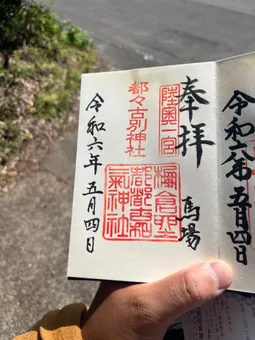 令和六年五月四日
奉拝 馬場
陸奥一宮
都々古別神社
氣神社
令和六年五月四日